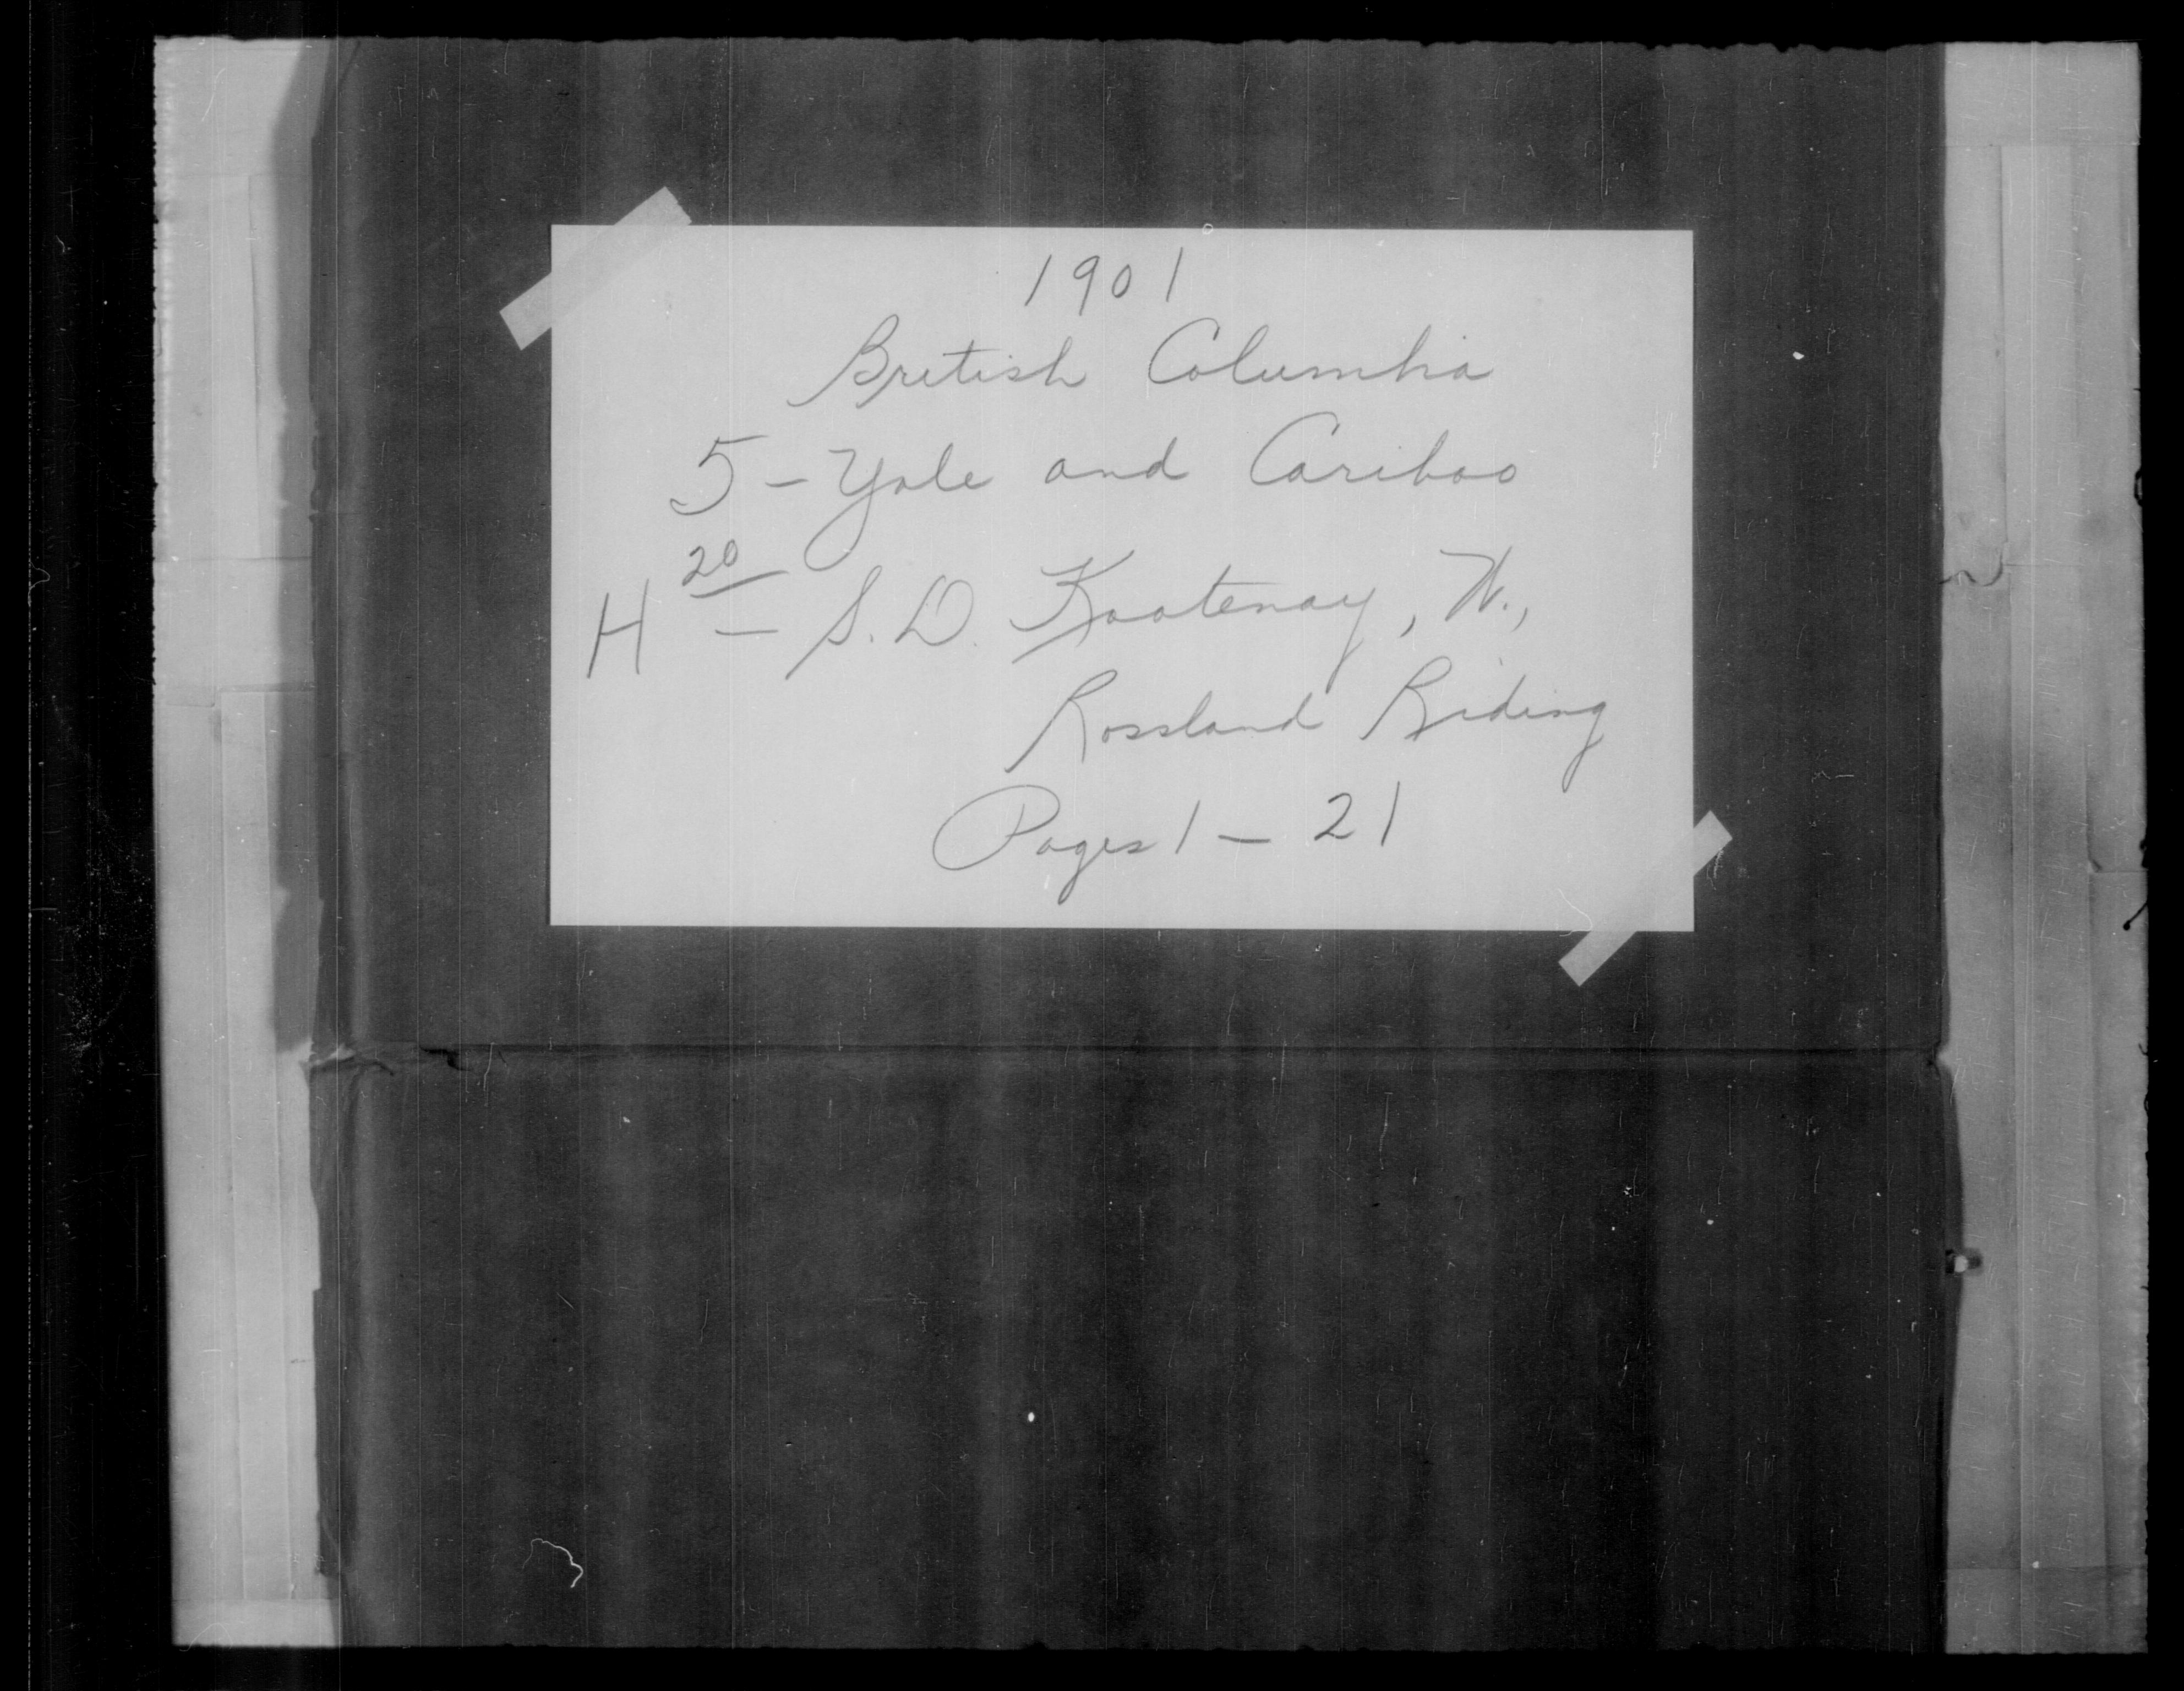 1901
British Columbia
5 - Yale and Cariboo
H 20 - S. D. Kootenay, W.,
Rossland Riding
Pages 1 - 21